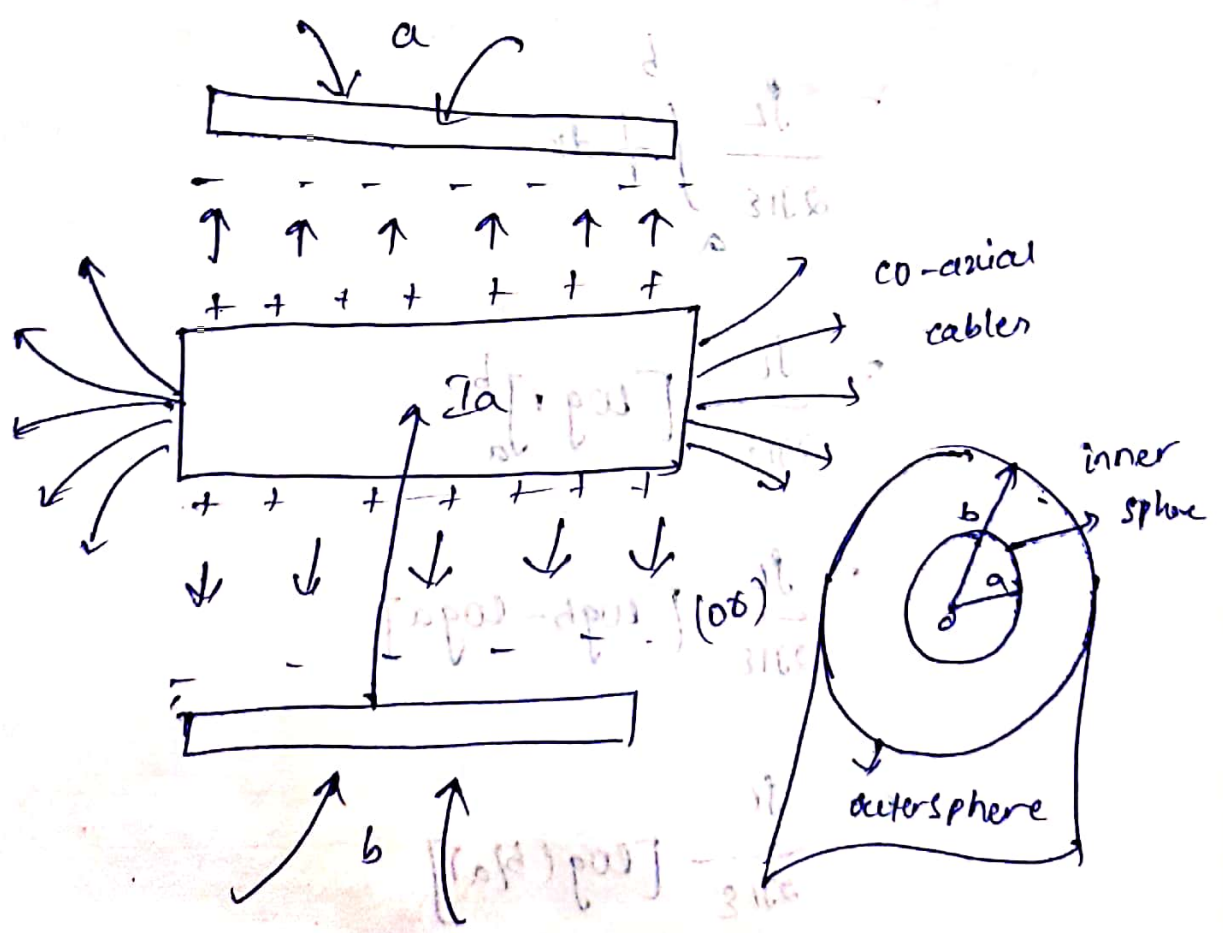 a
- - - - - - -
+ + + + + + +
co-axial
cables
Ia
+ + + + + + +
inner
sphere
b
a
o
(or)
- - - - -
outersphere
b